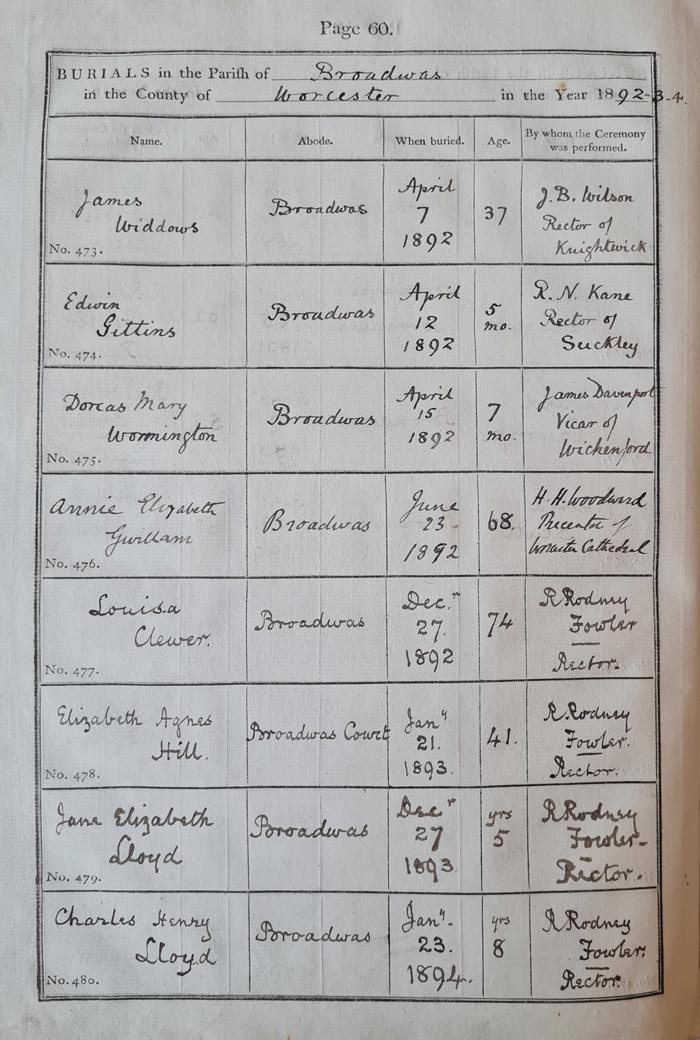 Page 60.
BURIALS in the Parish of Broadwas
in the County of Worcester in the Year 1892-3-4.
Name. Abode. When buried. Age. By whom the Ceremony was performed.
James Broadwas April 37 J. B. Wilson
Widdows 7 Rector of
No. 473. 1892 Knightwick
Edwin Broadwas April 5 R. N. Kane
Gittins 12 mo. Rector of
No. 474. 1892 Suckley
Dorcas Mary Broadwas April 7 James Davenport
Wormington 15 mo. Vicar of
No. 475. 1892 Wichenford
Annie Elizabeth Broadwas June 68 H. H. Woodward
Gwillam 23 Precentor of
No. 476. 1892 Worcester Cathedral
Louisa Broadwas Dec.r 74 R Rodney
Clewer. 27. Fowler
No. 477. 1892 Rector.
Elizabeth Agnes Broadwas Court Jany 41. R. Rodney
Hill. 21. Fowler.
No. 478. 1893. Rector.
Jane Elizabeth Broadwas Decr yrs R Rodney
Lloyd 27 5 Fowler
No. 479. 1893 Rector.
Charles Henry Broadwas Jany yrs R Rodney
Lloyd 23. 8 Fowler.
No. 480. 1894. Rector.